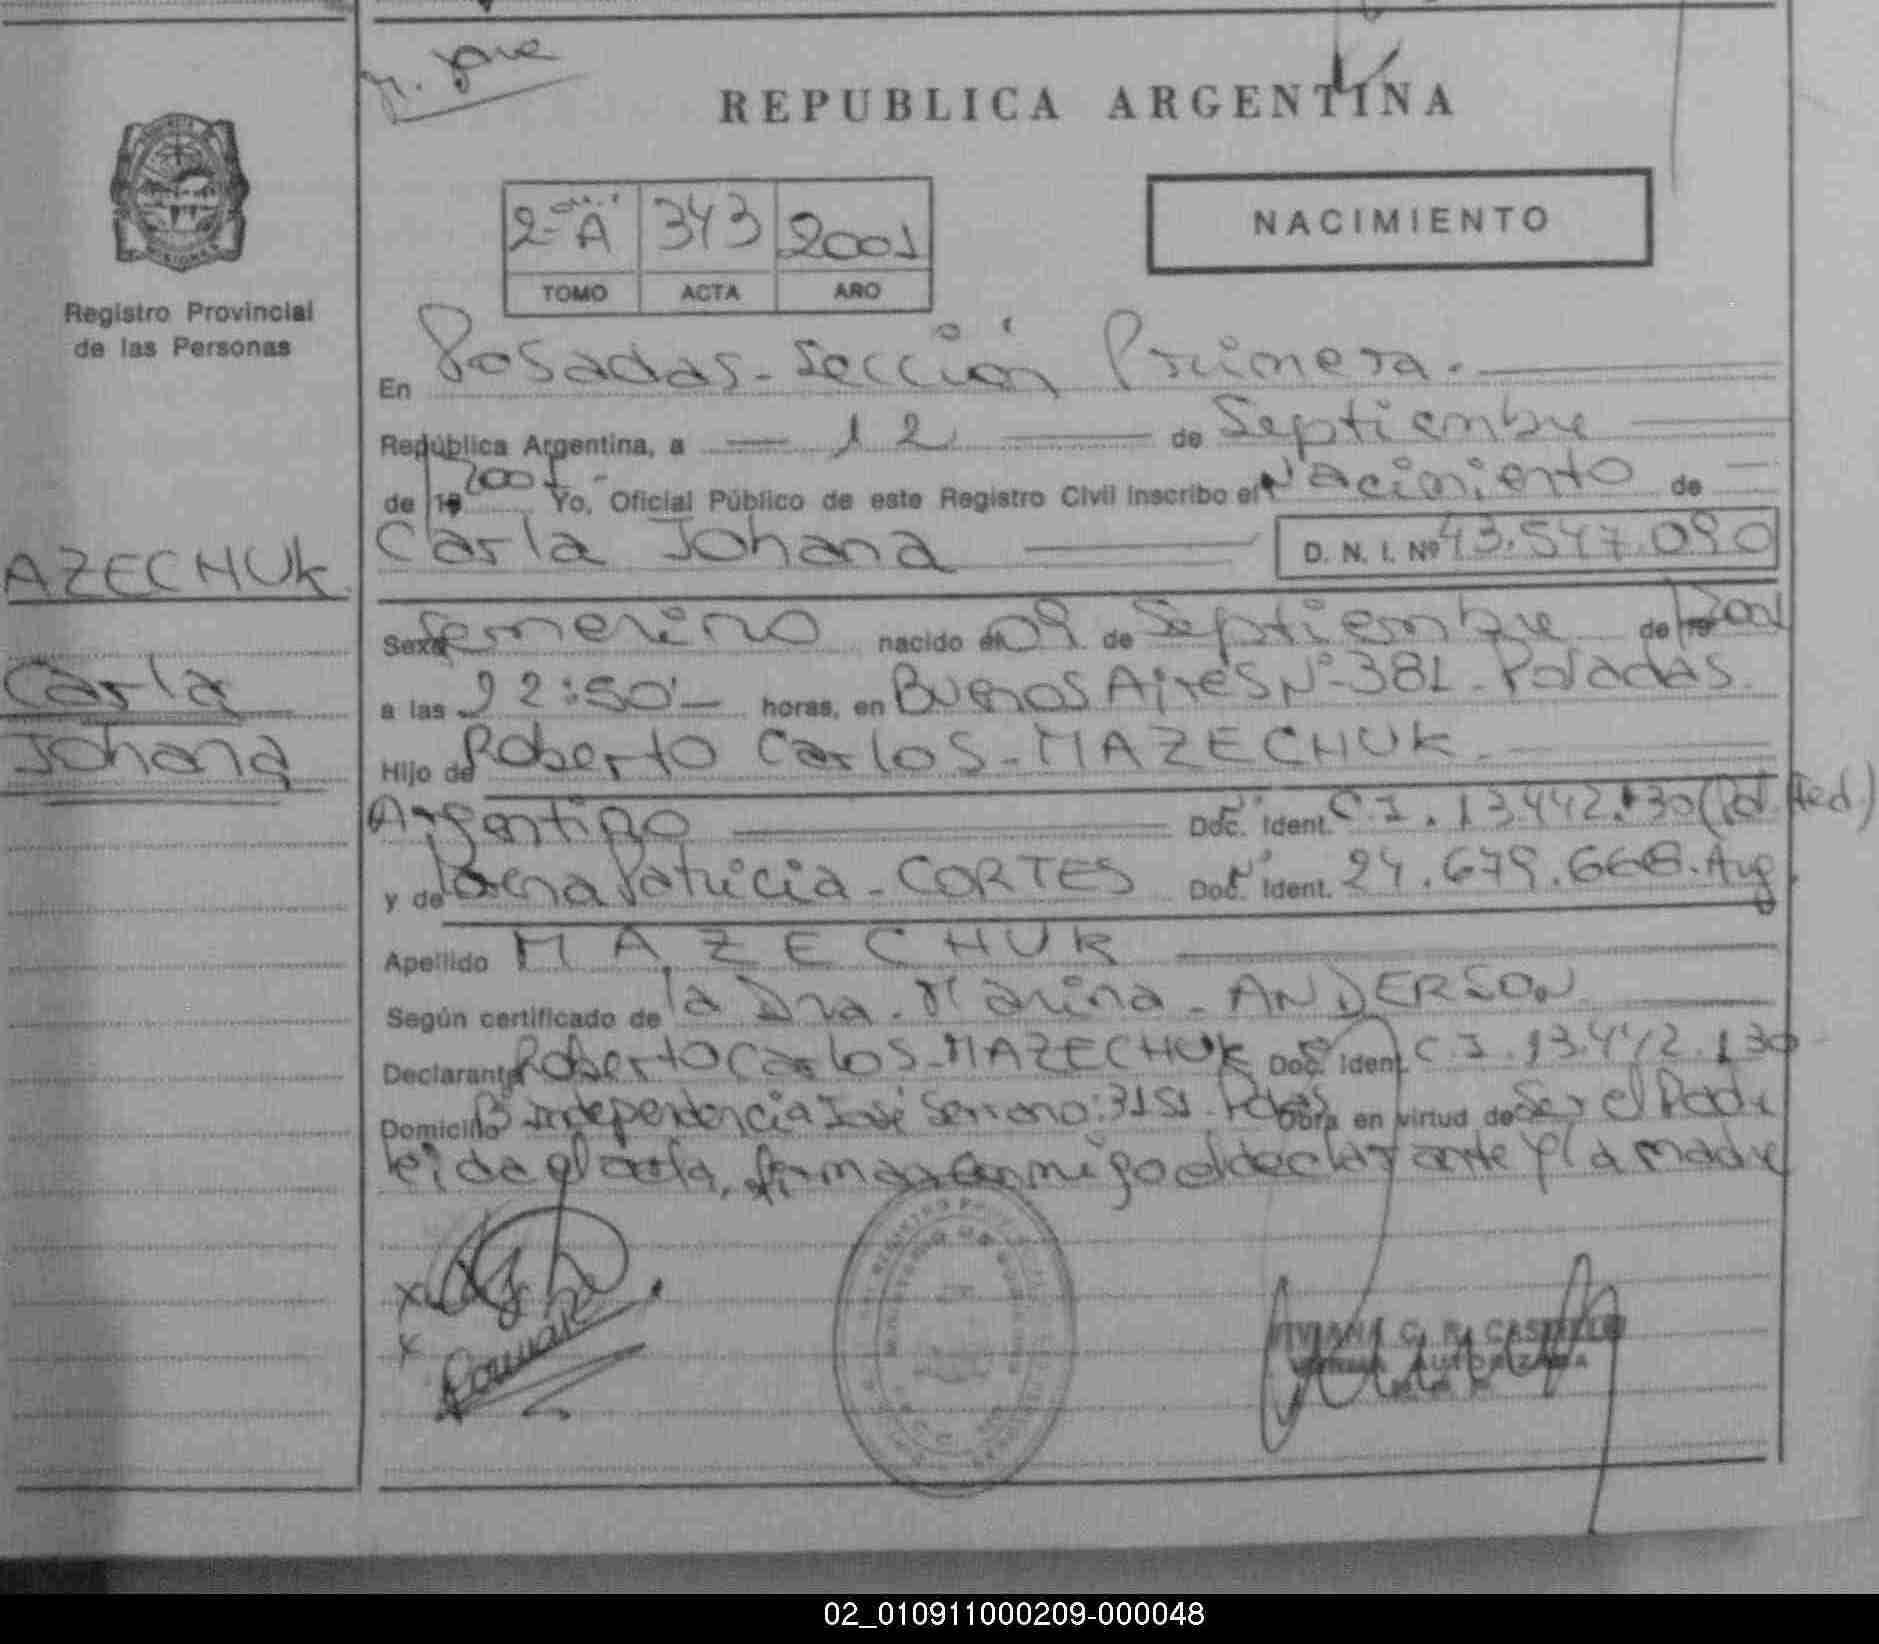 REPUBLICA ARGENTINA
2º A 343 2001
TOMO ACTA AÑO
NACIMIENTO
Registro Provincial
de las Personas
En Posadas - Sección Primera.
República Argentina, a 12 de Septiembre
de 19 2001 Yo, Oficial Público de este Registro Civil inscribo el Nacimiento de
Carla Johana D. N. I. Nº 43.547.090
AZECHUK
Carla
Johana
Sexo femenino nacido el 09 de Septiembre de 19 2001
a las 22:50 horas, en Buenos Aires Nº 381 - Posadas.
Hijo de Roberto Carlos - MAZECHUK
Argentino Doc. Ident. C.I. 13.442.130 (Pol. Fed.)
y de Patricia - CORTES Doc. Ident. 24.679.668. Arg.
Apellido MAZECHUK
Según certificado de la Dra. Marina - ANDERSON
Declarante Roberto Carlos - MAZECHUK Doc. Ident. C.I. 13.442.130
Domicilio Bº Independencia José Serrano: 3151 - Pdas Obra en virtud de Ser el Padre
leída el acta, firman conmigo el declarante y la madre
VIVIANA C. R.
FIRMA AUTORIZADA
02_010911000209-000048